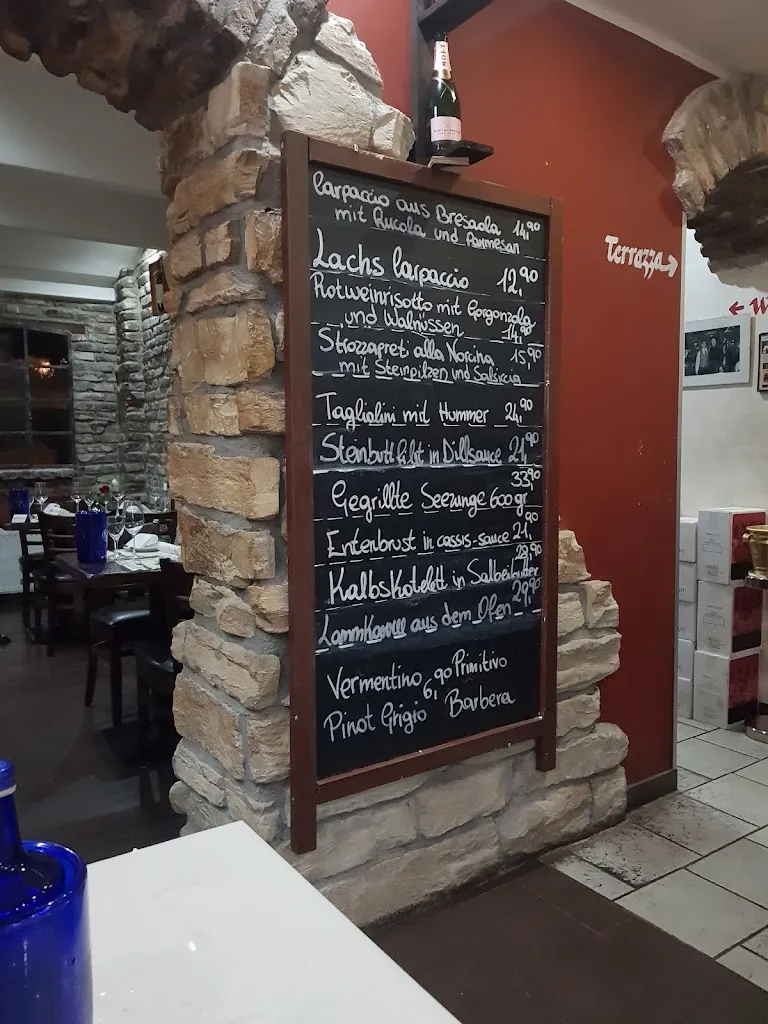 MOËT
Carpaccio aus Bresaola 14,90
mit Rucola und Parmesan
Lachs Carpaccio 12,90
Rotweinrisotto mit Gorgonzola
und Walnüssen 14,90
Strozzapreti alla Norcina 15,90
mit Steinpilzen und Salsiccia
Tagliolini mit Hummer 24,90
Steinbutt Filet in Dillsauce 21,90
33,90
Gegrillte Seezunge 600 gr
Entenbrust in cassis-sauce 21,90
KalbsKotelett in Salbeibutter 28,90
LammKarree aus dem Ofen 29,90
Vermentino 6,90 Primitivo
Pinot Grigio Barbera
Terrazza →